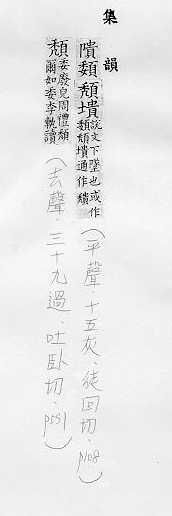 集韻
隤頽頹墤說文下墜也或作
頽頹墤通作穨
(平聲．十五灰．徒回切．p108)
頹委廢皃周禮頹
爾如委李軌讀
(去聲．三十九過．吐臥切．p591)